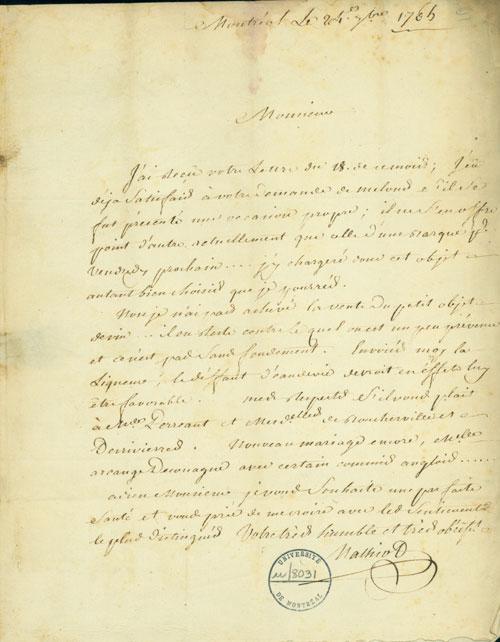 Montréal Le 24.e 7bre 1765
Monsieur
J'ai Reçu votre Lettre du 18. de cemois; J'eu
deja Satisfaid à votre demande de melond s'il se
fut présenté une occasion propre; il ne s'en offre
point d'autre actuellement que celle d'une Barque pr.
vendredy prochain ... j'y chargeré sous cet objet
autant bien choisid que je pourréd.
Non je n'ai pad achevé la vente du petit objet
devin .. il en Reste contre le quel on est un peu prévenu
et ce n'est pad Sand fondement. Envoiéd moy la
Liqueur, le deffaut d'eaudevie devroit en effet luy
être favorable. med Respectd S'il voud plait
à Perreant et Mesdelled de Boucherville et
Derrivierred. Nouveau mariage encore, Melle
arcange avec certain commid angloid ......
adieu Monsieur je voud Souhaite une parfaite
Santé et voud prie de me croire avec led Sentiment
le plud distinguéd Votre tréd humble et tréd obéisst
UNIVERSITÉ
u/8031
DE MONTRÉAL